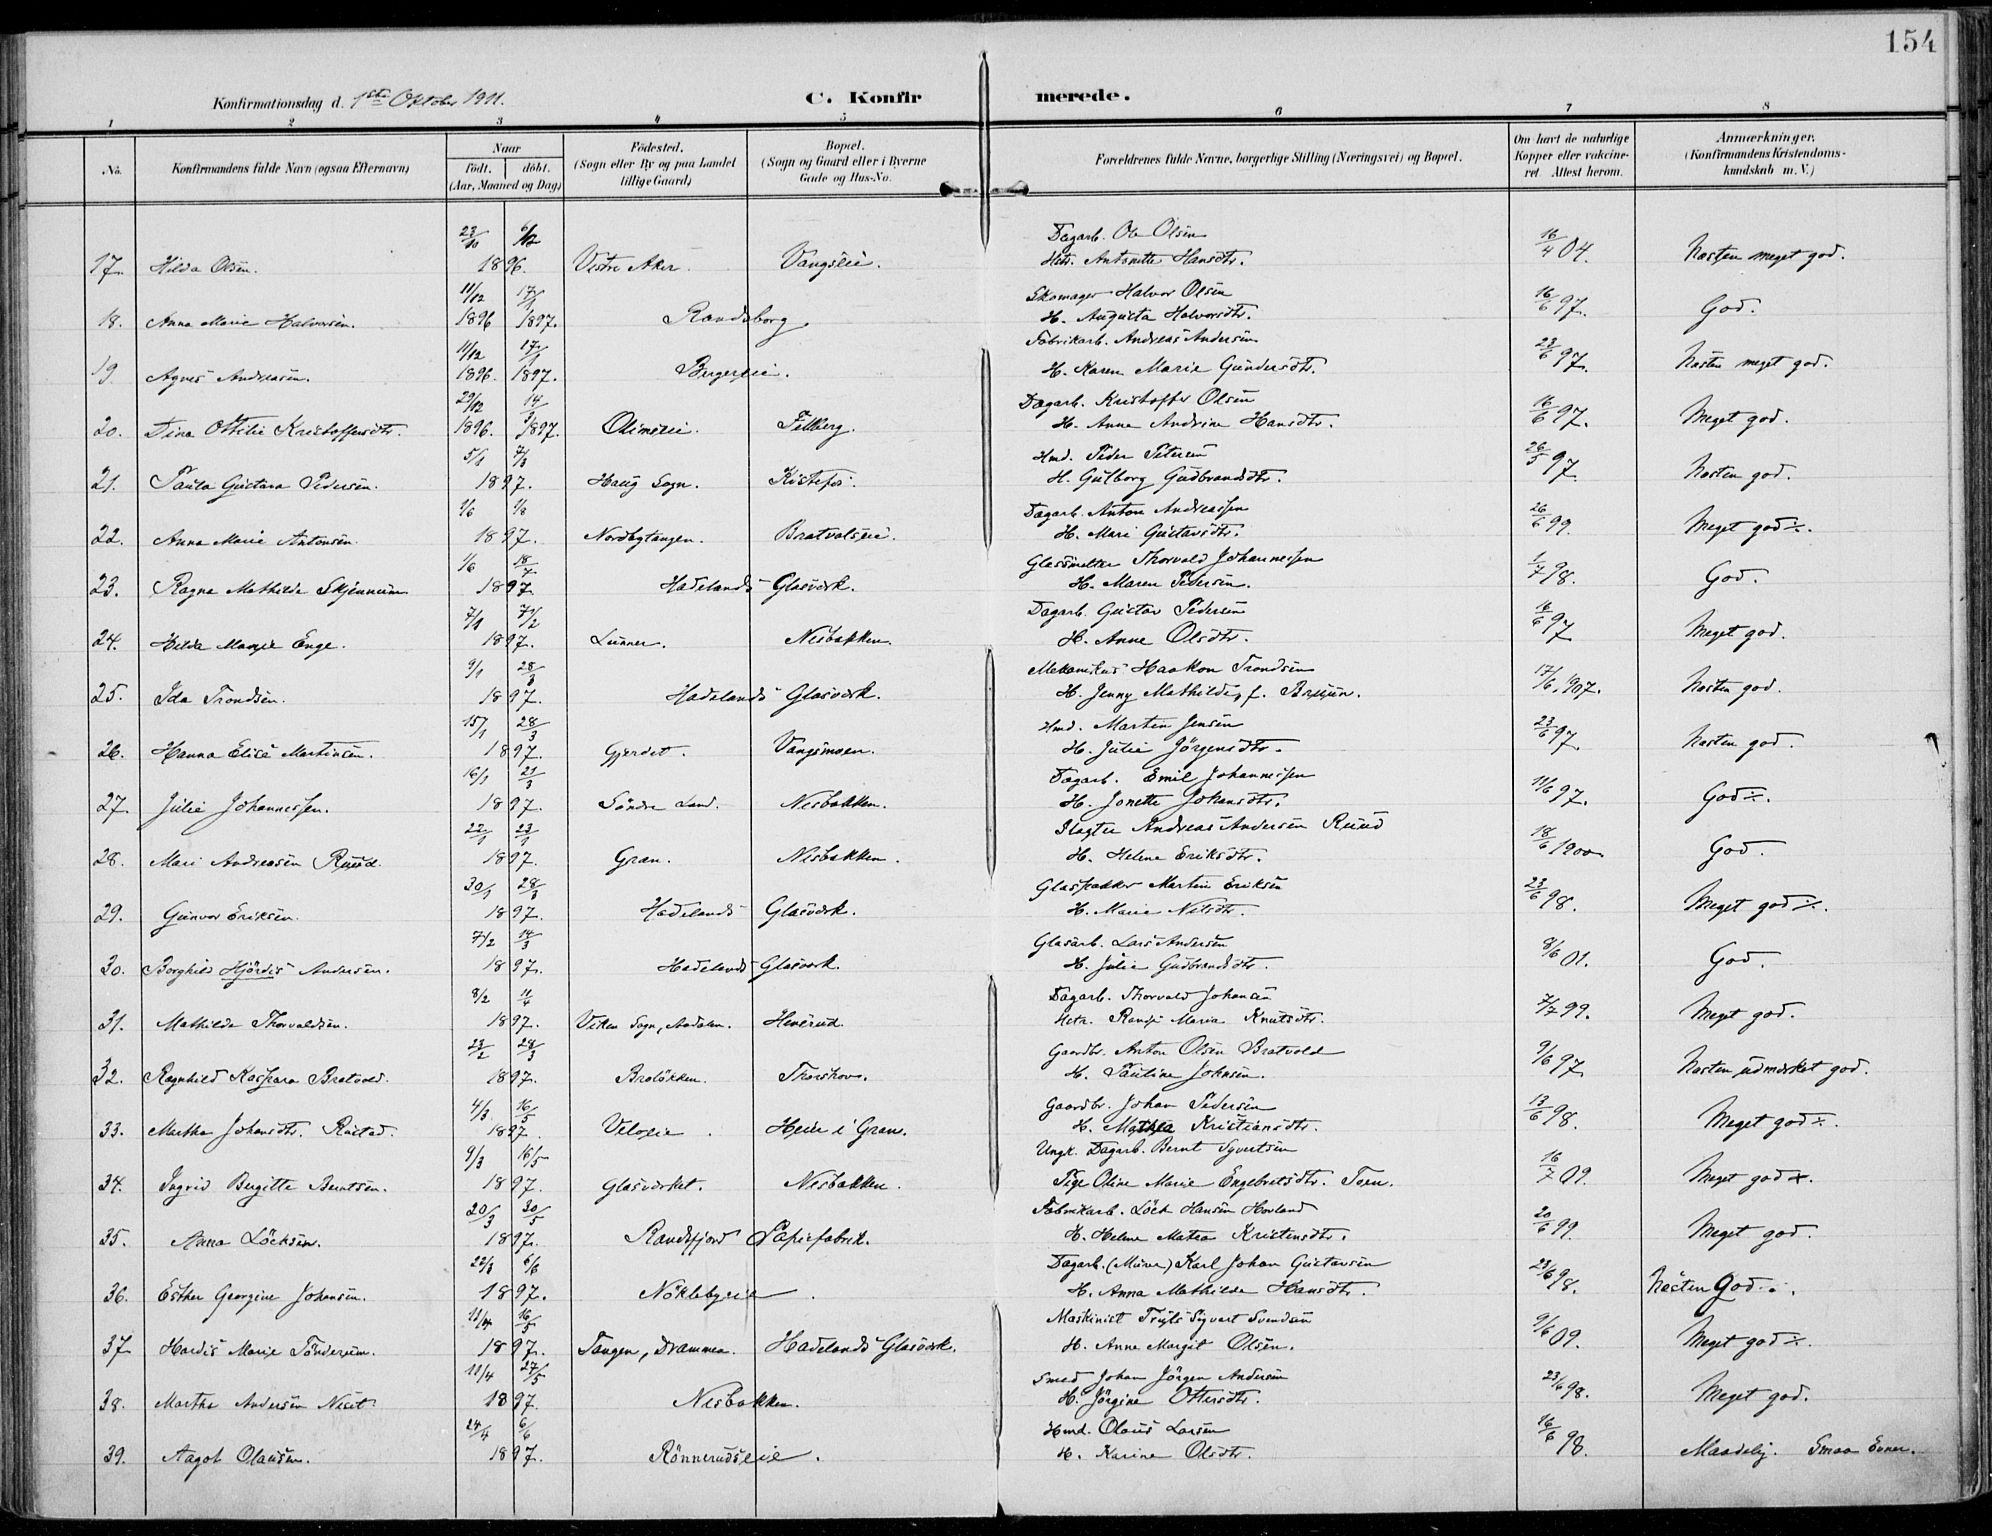 154
Konfirmationsdag d. 1ste Oktober 1911.
C. Konfirmerede.
1 2 3 4 5 6 7 8
No. Konfirmandens fulde Navn (ogsaa Efternavn) Naar födt. döbt. (Aar, Maaned og Dag) Födested. (Sogn eller By og paa Landet tillige Gaard) Bopæl. (Sogn og Gaard eller i Byerne Gade og Hus-No. Forældrenes fulde Navne, borgerlige Stilling (Næringsvei) og Bopæl. Om havt de naturlige Kopper eller vakcineret. Attest herom. Anmærkninger. (Konfirmandens Kristendomskundskab m. V.)
23/10 6/12 Dagarb. Ole Olsen
17. Hilda Olsen. 1896. Vestre Aker. Vangseie. Htr. Antonette Hansdtr. 16/4 04. Næsten meget god.
11/12 17/1 Skomager Halvor Olsen
18. Anna Marie Halvorsen. 1896 1897. Randsborg. H. Augusta Halvorsdtr. 16/6 97. God.
11/12 17/1 Fabrikarb. Andreas Andersen
19 Agnes Andreasen. 1896. 1897. Bergereie. H. Karen Marie Gundersdtr. 23/6 97. Næsten meget god.
29/12 14/3 Dagarb. Kristoffer Olsen
20. Dina Ottilie Kristoffersdtr. 1896. 1897. Olimseie. Felberg. H. Anne Andrine Hansdtr. 16/6 97. Meget god.
5/1 7/3 Hmd. Peder Petersen
21. Paula Gustava Pedersen. 1897. Haug Sogn. Kistefos. H. Gulborg Gudbrandsdtr. 26/5 97. Næsten god.
1/6 1/8 Dagarb. Anton Andreassen
22. Anna Marie Antonsen. 1897. Nordbytangen. Bratvalseie. H. Mari Gustavsdtr. 26/6 99. Meget god÷.
1/6 18/7 Glassmelter Thorvald Johannessen
23. Ragna Mathilde Skjennum 1897 Hadelands Glasværk. H. Maren Pedersen. 1/7 98. God.
7/1 7/2 Dagarb. Gustav Pedersen
24. Hilda Marie Enge. 1897. Lunner. Nesbakken. H. Anne Olsdtr. 16/6 97 Meget god.
9/1 28/3 Mekanikus Haakon Trondsen
25. Ida Trondsen. 1897. Hadelands Glasværk. H. Jenny Mathilde, f. 17/6 1907. Næsten god.
15/1 28/3 Hmd. Martin Jensen
26. Hanna Elise Martinsen. 1897. Gjerdet. Vangsmoen. H. Julie Jörgensdtr. 23/6 97. Næsten god.
16/1 21/3 Dagarb. Emil Johannessen
27. Julie Johannessen. 1897. Söndre Land. Nesbakken. H. Jonette Johansdtr. 11/6 97. God÷.
22/1 23/1 Slagter Andreas Andersen Ruud
28. Mari Andreasen Ruud. 1897. Gran. Nesbakken. H. Helene Eriksdtr. 18/6 1900 God.
30/1 28/3 Glaspakker Martin Eriksen
29. Gunvor Eriksen. 1897. Hadelands Glasværk. H. Marie Nilsdtr. 23/6 98. Meget god÷.
7/2 14/3 Glasarb. Lars Andersen
30. Borghild Hjördis Andersen. 1897. Hadelands Glasværk. H. Julie Gudbrandsdtr. 8/6 01. God.
8/2 11/4 Dagarb. Thorvald Johansen
31. Mathilde Thorvaldsen. 1897. Viken Sogn, Aadalen. Henerud. Htr. Randi Maria Knutsdtr. 7/7 99. Meget god.
23/2 28/3 Gaardbr. Anton Olsen Bratvold
32. Ragnhild Kaspara Bratvold. 1897. Bralökken. Thorshov. H. Pauline Johnsen. 9/6 97 Næsten udmærket god.
4/3 16/5 Gaardbr. Johan Pedersen
33. Martha Johansdtr. Röstad. 1897. Velseie. Heie i Gran. H. Mathea Kristiansdtr. 13/6 98. Meget god÷.
9/3 16/5 Ungk. Dagarb. Bernt Syvertsen
34. Ingrid Birgitte Berntsen. 1897. Glasværket. Nesbakken. Pige Oline Marie Engebretsdtr. Toen. 16/7 09. Meget god
20/3 30/5 Fabrikarb. Löck Hansen Hovland
35. Anna Löcksen. 1897. Randsfjord Papirfabrik. H. Helene Matea Kristensdtr. 20/6 99. Meget god.
22/3 6/6 Dagarb. (Murer) Karl Johan Gustavsen
36. Esther Georgine Johansen. 1897. Nöklebyeie. H. Anna Mathilde Hansdtr. 23/6 98. Næsten God÷.
11/4 16/5 Maskinist Sigvart Svendsen
37 Hardis Marie Tönderum. 1897. Tangen, Drammen. Hadelands Glasværk. H. Anne Margit Olsen. 9/6 09. Meget god÷.
11/4 27/5 Smed Johan Jörgen Andersen
38. Martha Andersen Neset 1897. Nesbakken. H. Jörgine Ottersdtr. 23/6 98. Meget god.
24/4 6/6 Hmd. Olaus Larsen
39. Aagot Olausen. 1897. Rönnerudseie. H. Karine Olsdtr. 16/6 98. Maadelig. Smaa Evner.